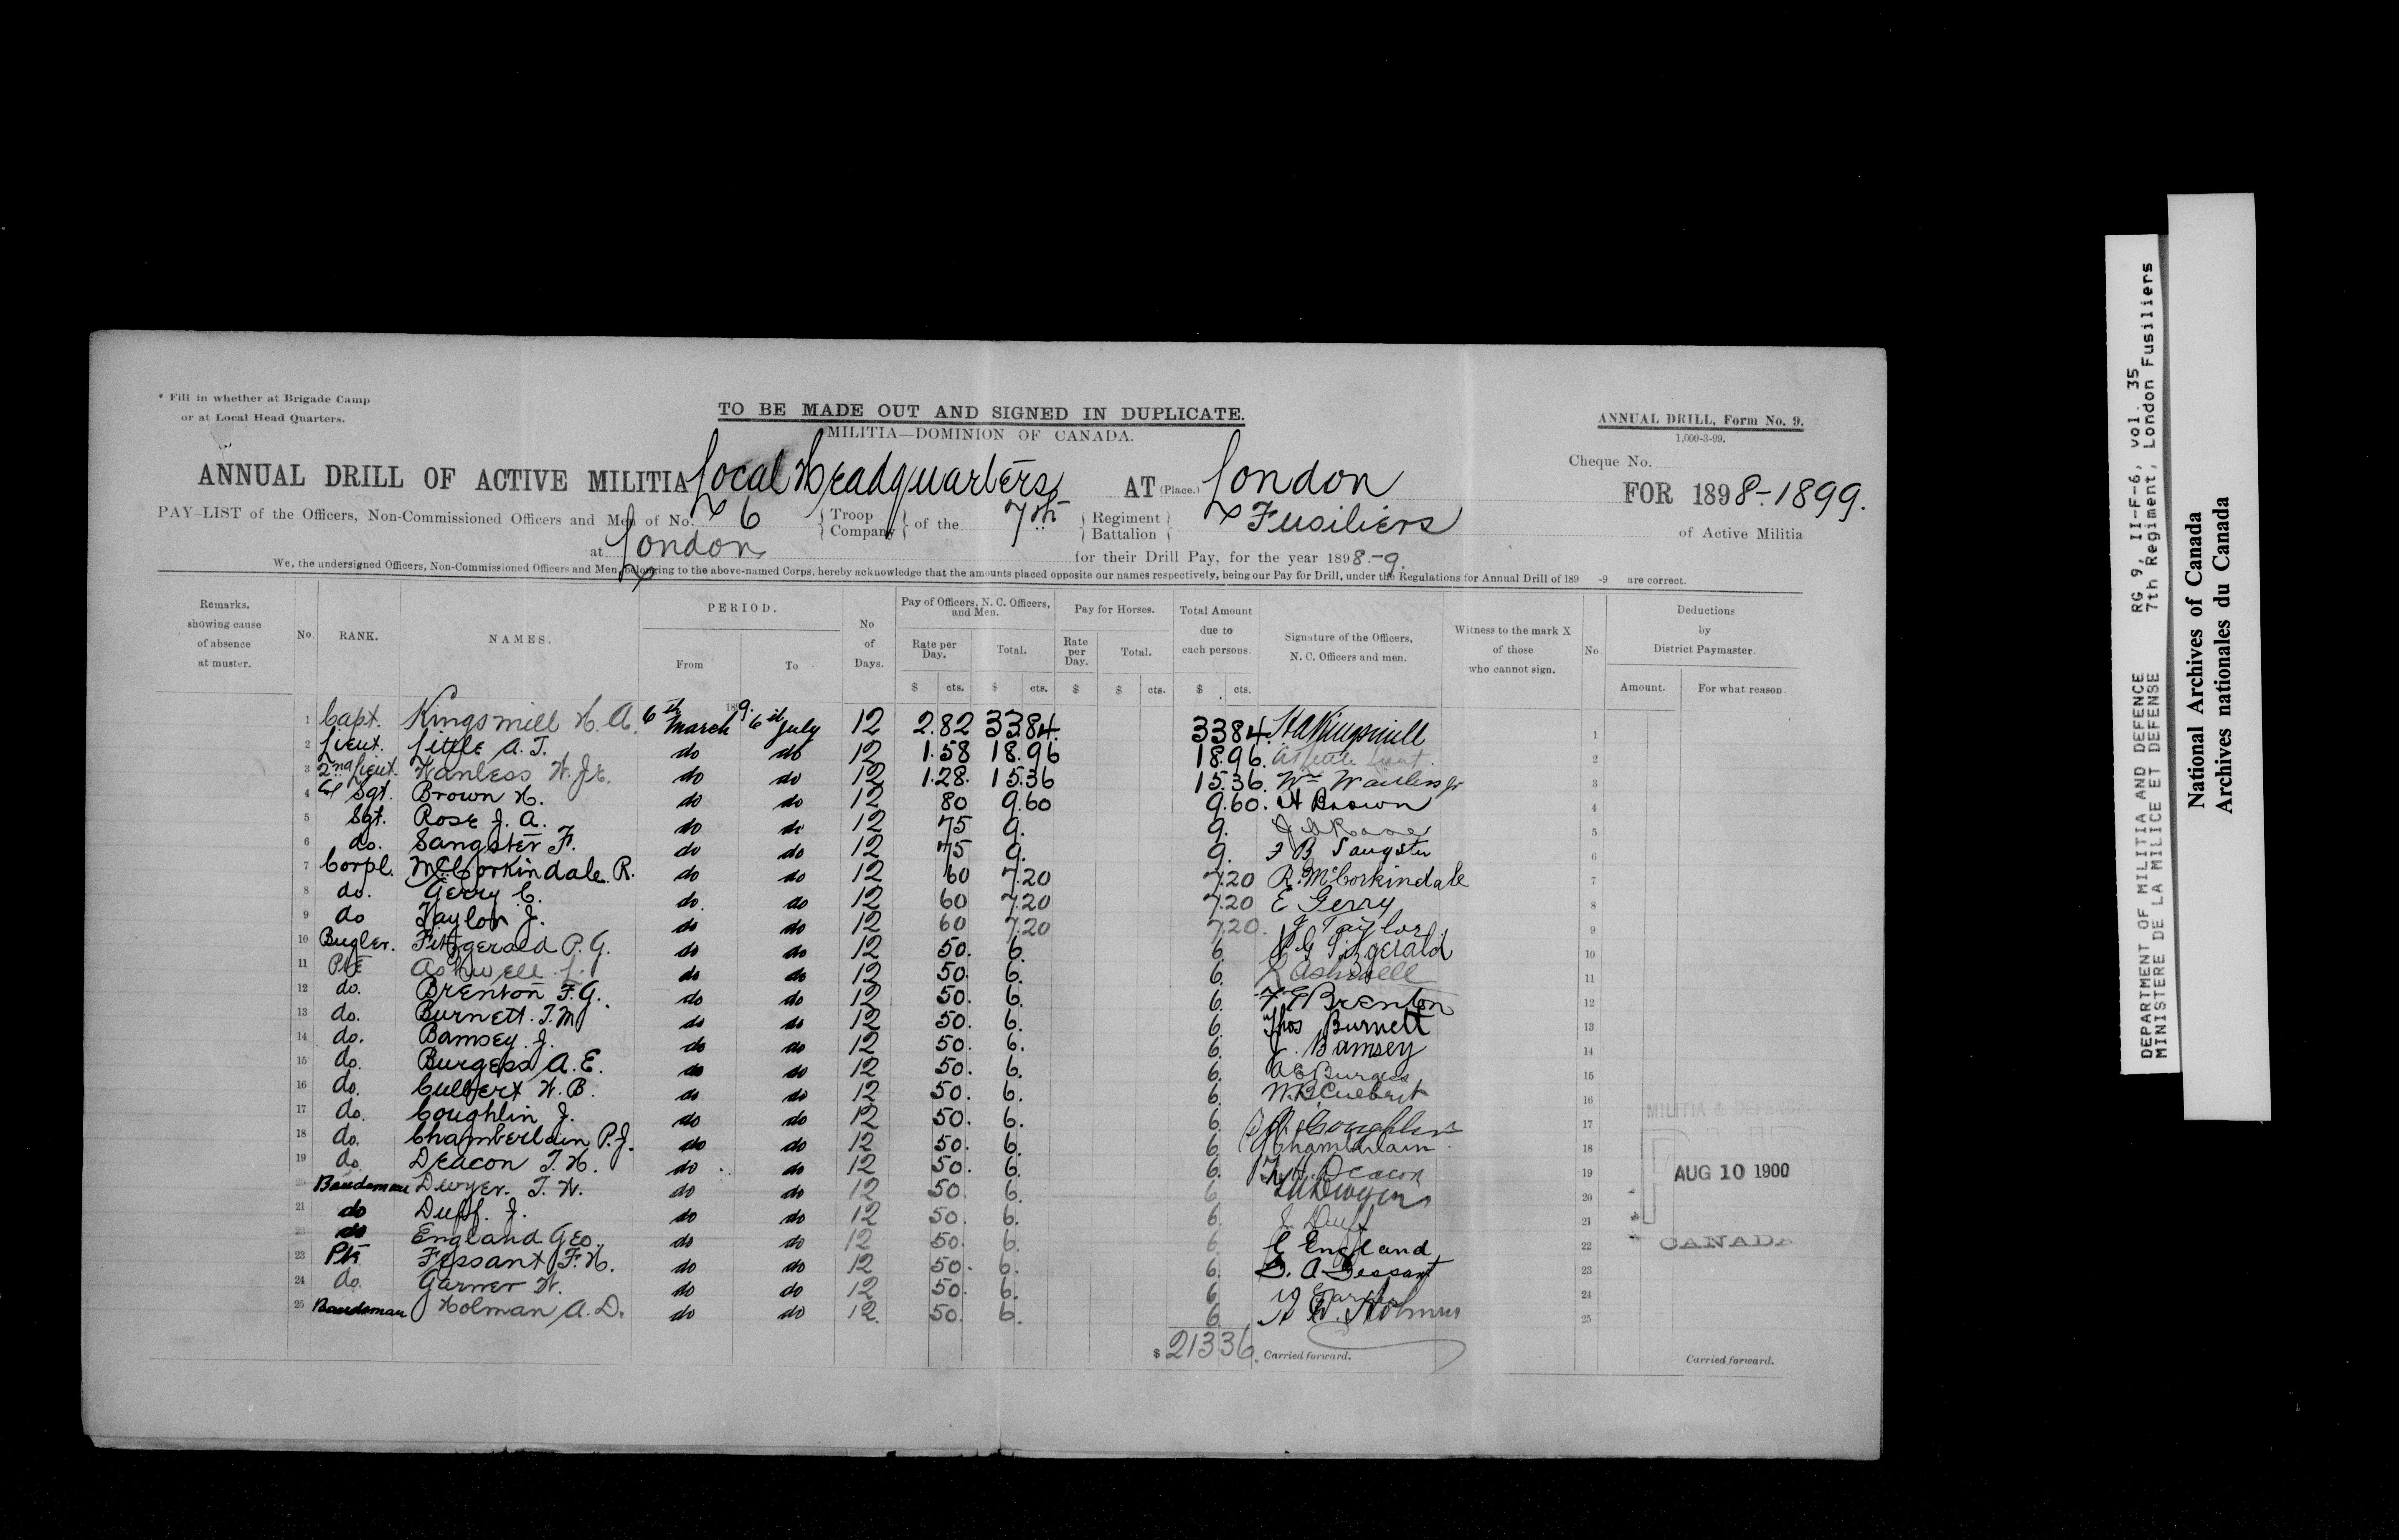 * Fill in whether at Brigade Camp
or at Local Head Quarters.
TO BE MADE OUT AND SIGNED IN DUPLICATE.
MILITIA—DOMINION OF CANADA.
ANNUAL DRILL, Form No. 9.
1,000-3-99.
Cheque No.
ANNUAL DRILL OF ACTIVE MILITIA Local Headquarters AT (Place.) London FOR 1898-1899.
PAY-LIST of the Officers, Non-Commissioned Officers and Men of No. 6 { Troop Company } of the 7th { Regiment Battalion } Fusiliers of Active Militia
at London for their Drill Pay, for the year 1898-9.
We, the undersigned Officers, Non-Commissioned Officers and Men, belonging to the above-named Corps, hereby acknowledge that the amounts placed opposite our names respectively, being our Pay for Drill, under the Regulations for Annual Drill of 189 -9 are correct.
Remarks, showing cause of absence at muster. No. RANK. NAMES. PERIOD. From To No of Days. Pay of Officers, N. C. Officers, and Men. Rate per Day. Total. Pay for Horses. Rate per Day. Total. Total Amount due to each persons. Signature of the Officers, N. C. Officers and men. Witness to the mark X of those who cannot sign. No Deductions by District Paymaster. Amount. For what reason
$ cts. $ cts. $ $ cts. $ cts.
1 Capt. Kingsmill H. A. 6th March 1899. 6th July 12 2.82 33.84. 33.84. HAKingsmill 1
2 Lieut. Little A. T. do do 12 1.58 18.96 18.96. 2
3 2nd Lieut. Wanless W. Jr. do do 12 1.28. 15.36 15.36. Wm Wanless Jr 3
4 Col Sgt. Brown H. do do 12 80 9.60 9.60. H Brown 4
5 Sgt. Rose J. A. do do 12 75 9. 9. J A Rose 5
6 do. Sangster F. do do 12 75 9. 9. F B Sangster 6
7 Corpl. McCorkindale R. do do 12 60 7.20 7.20 R. McCorkindale 7
8 do. Gerry C. do. do 12 60 7.20 7.20 E Gerry 8
9 do Taylor J. do do 12 60 7.20 7.20. J Taylor 9
10 Bugler. Fitzgerald P. G. do do 12 50. 6. 6. P G Fitzgerald 10
11 Pte Ashwell L. do do 12 50. 6. 6. L Ashwell 11
12 do. Brenton F. G. do do 12 50. 6. 6. F G Brenton 12
13 do. Burnett. T. M do do 12 50. 6. 6. Thos Burnett 13
14 do. Bamsey J. do do 12 50. 6. 6. J. Bamsey 14
15 do. Burgess A. E. do do 12 50. 6. 6. A E Burgess 15
16 do. Culbert W. B. do do 12 50. 6. 6. W. B. Culbert 16
17 do. Coughlin J. do do 12 50. 6. 6. J. Coughlin 17
18 do. Chamberlain P. J. do do 12 50. 6. 6. Chamberlain 18
19 do. Deacon T. H. do do 12 50. 6. 6. T. H. Deacon 19
20 Bandsman Dwyer. T. W. do do 12 50. 6. 6. Dwyer 20
21 do Duff. J. do do 12 50. 6. 6. J. Duff 21
22 do England Geo. do do 12 50. 6. 6. G England 22
23 Pte Fessant F. H. do do 12 50. 6. 6. Fessant 23
24 do. Garner W. do do 12 50. 6. 6. W Garner 24
25 Bandsman Holman A. D. do do 12. 50. 6. 6. A D. Holman 25
$ 213 36. Carried forward. Carried forward.
MILITIA & DEFENCE
AUG 10 1900
CANADA
DEPARTMENT OF MILITIA AND DEFENCE RG 9, II-F-6, vol. 35
MINISTERE DE LA MILICE ET DEFENSE 7th Regiment, London Fusiliers
National Archives of Canada
Archives nationales du Canada